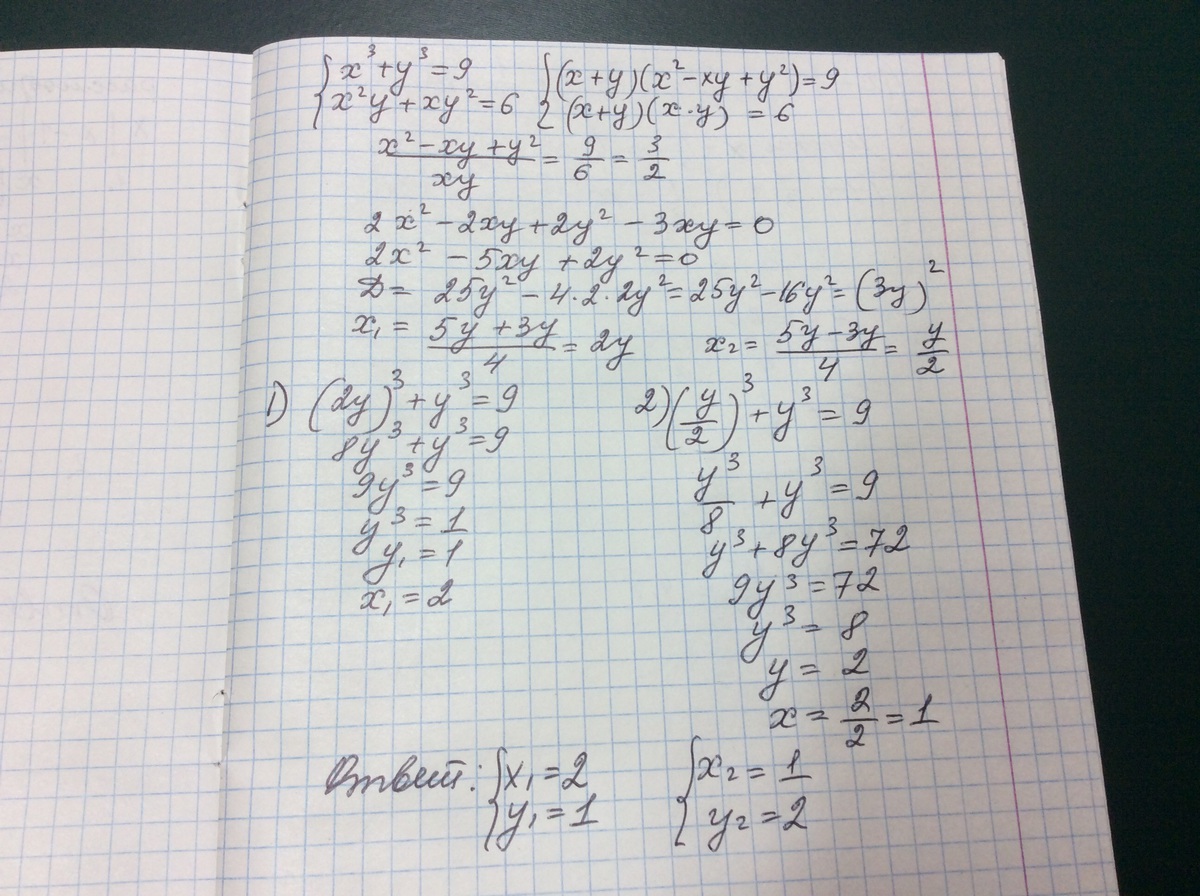 {x³+y³=9 {(x+y)(x²-xy+y²)=9
{x²y+xy²=6 {(x+y)(x·y) = 6
(x²-xy+y²)/(xy) = 9/6 = 3/2
2x²-2xy+2y²-3xy=0
2x²-5xy+2y²=0
D= 25y²-4·2·2y²=25y²-16y²=(3y)²
x₁= (5y+3y)/4 = 2y x₂= (5y-3y)/4 = y/2
1) (2y)³+y³=9
8y³+y³=9
9y³=9
y³=1
y₁=1
x₁=2
2) (y/2)³+y³=9
y³/8 +y³=9
y³+8y³=72
9y³=72
y³= 8
y= 2
x= 2/2 =1
Ответ: {x₁=2 {x₂=1
{y₁=1 {y₂=2